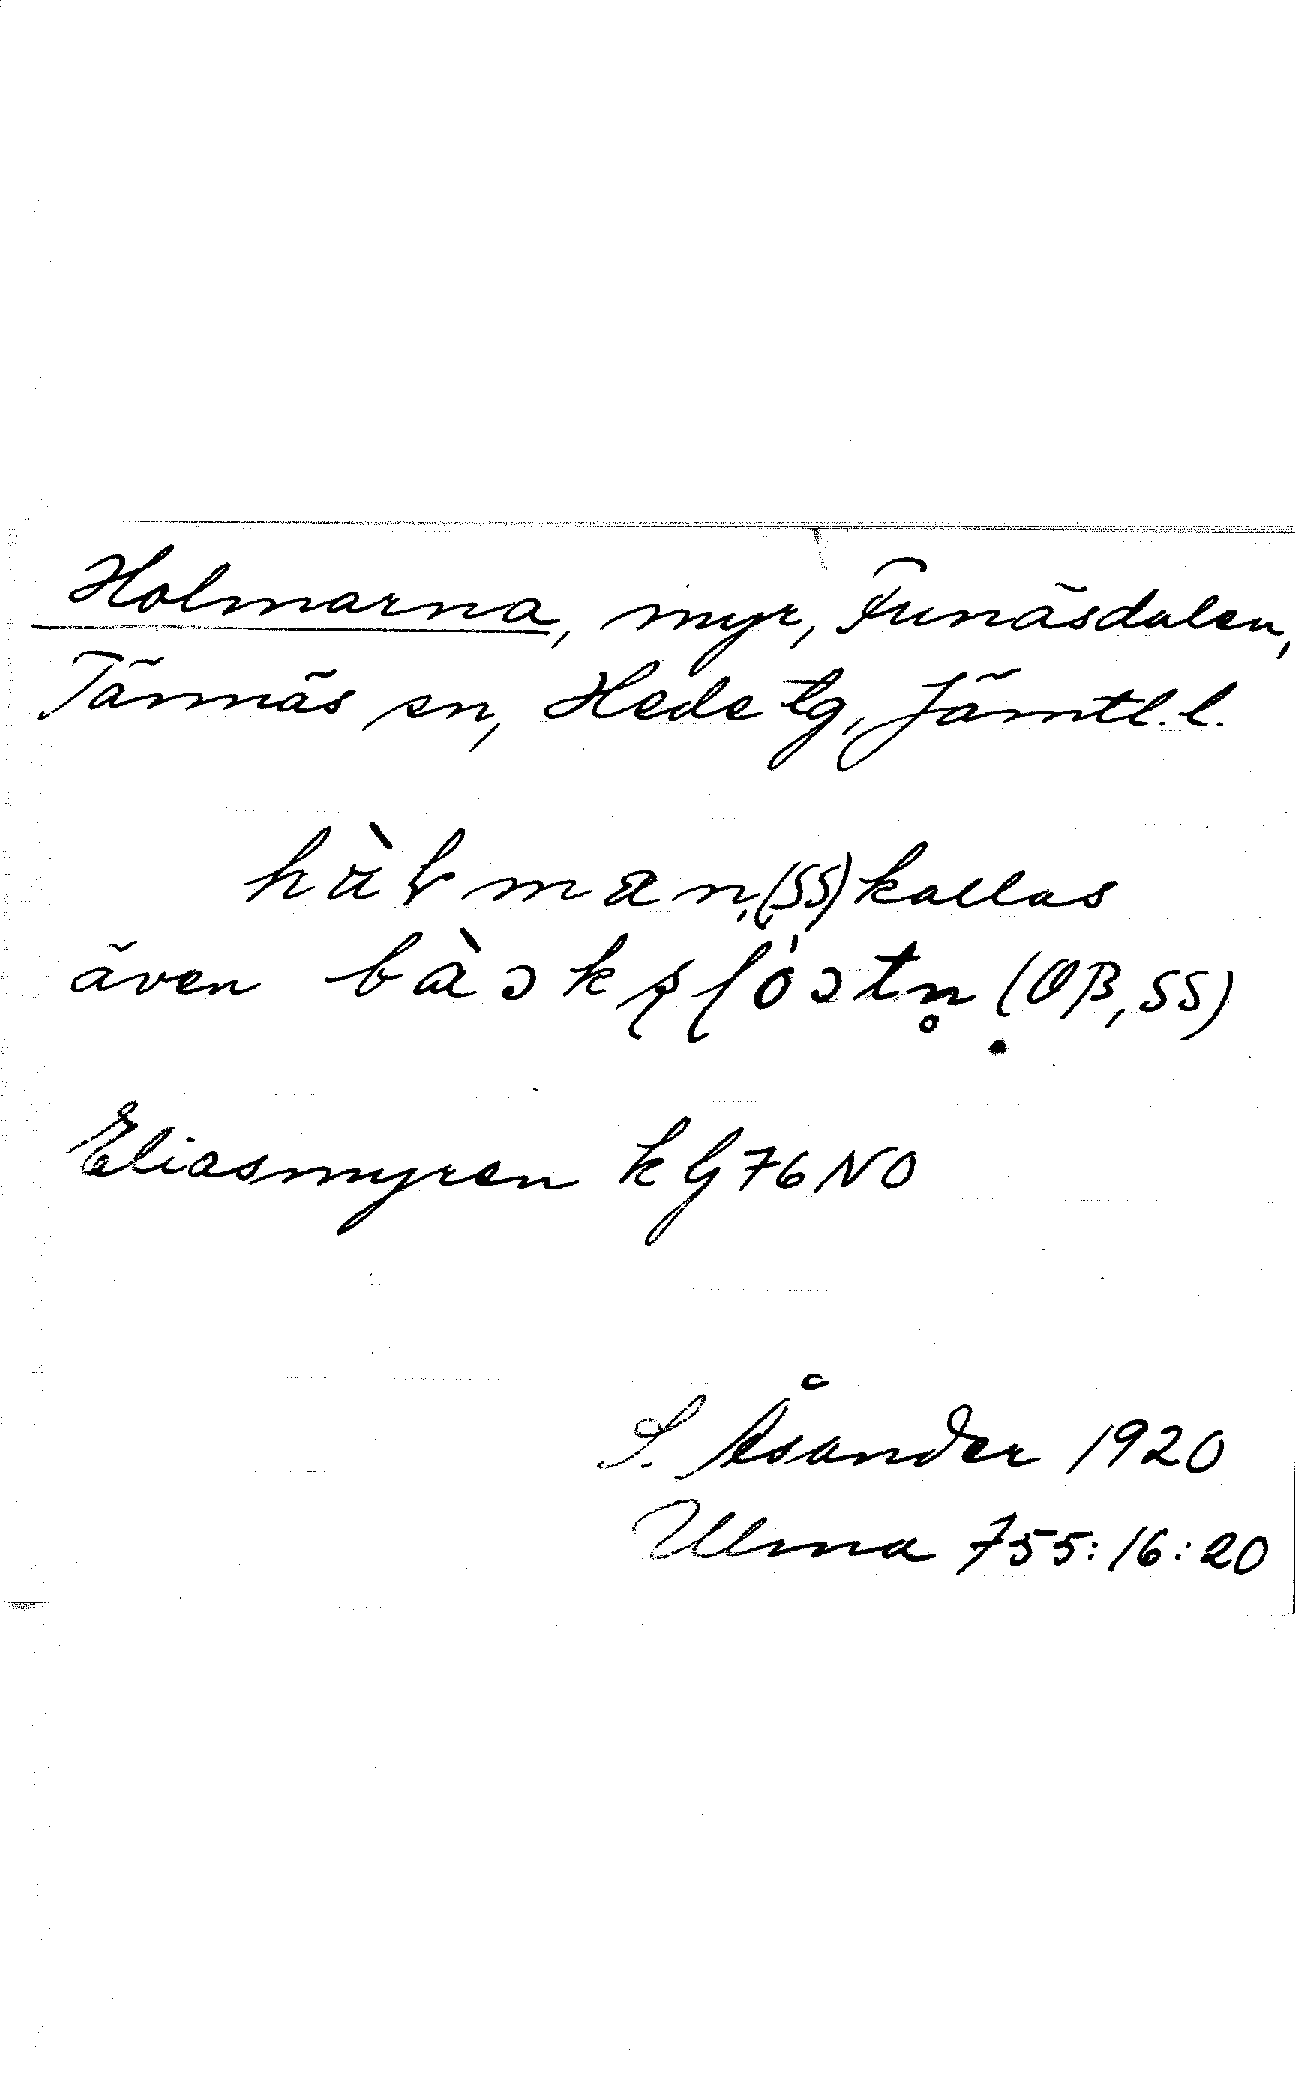 Holmarna, myr, Funäsdalen,
Tännäs sn, Hede tg, Jämtl. l.
(SS) kallas
även (OB, SS)
Eliasmyren k G 76 NO
S. Åsander 1920
Ulma 755:16:20